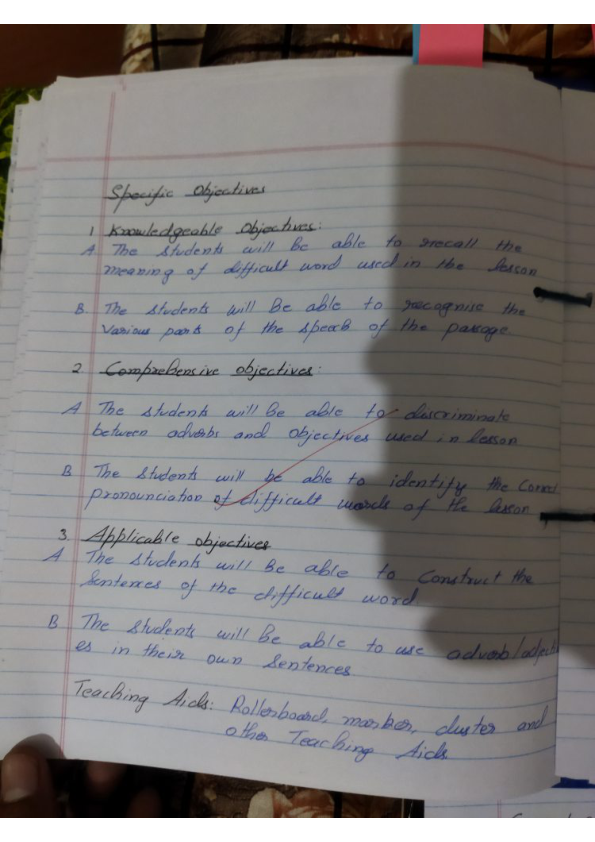 Specific Objectives
1 Knowledgeable Objectives:
A. The students will be able to recall the
meaning of difficult word used in the lesson
B. The students will be able to recognise the
various parts of the speech of the passage.
2 Comprehensive objectives:
A The students will be able to discriminate
between adverbs and objectives used in lesson
B The students will be able to identify the correct
pronounciation of difficult words of the lesson
3. Applicable objectives
A The students will be able to construct the
sentences of the difficult word
B The students will be able to use adverb/adjecti
es in their own sentences.
Teaching Aids: Rollerboard, marker, duster and
other Teaching Aids